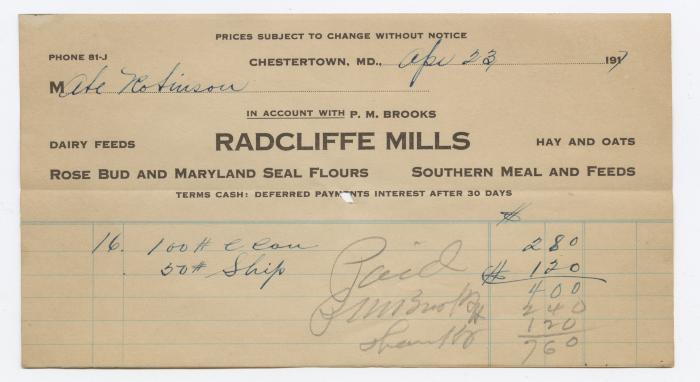 PRICES SUBJECT TO CHANGE WITHOUT NOTICE
PHONE 81-J
CHESTERTOWN, MD., Apr 23, 1917
M Abe Robinson
IN ACCOUNT WITH P. M. BROOKS
DAIRY FEEDS RADCLIFFE MILLS HAY AND OATS
ROSE BUD AND MARYLAND SEAL FLOURS SOUTHERN MEAL AND FEEDS
TERMS CASH: DEFERRED PAYMENTS INTEREST AFTER 30 DAYS
16. 100# C Corn 280
50# Ship 120
Paid 400
P M Brooks 240
120
760